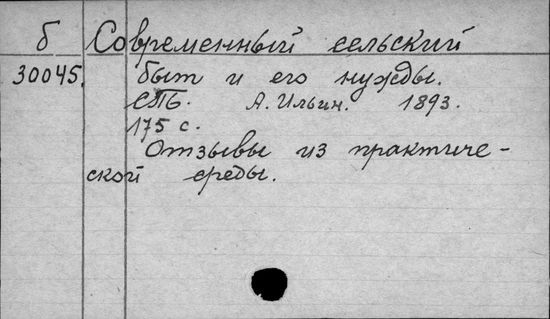 б Современный сельский
30045. быт и его нужды.
СПБ. А. Ильин. 1893.
175 с.
Отзывы из практиче-
ской среды.